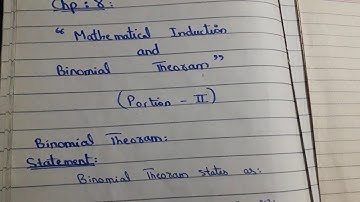 Chp : 8 :
" Mathematical Induction
and
Binomial Theoram "
( Portion - II )
Binomial Theoram :
Statement :
Binomial Theoram states as :